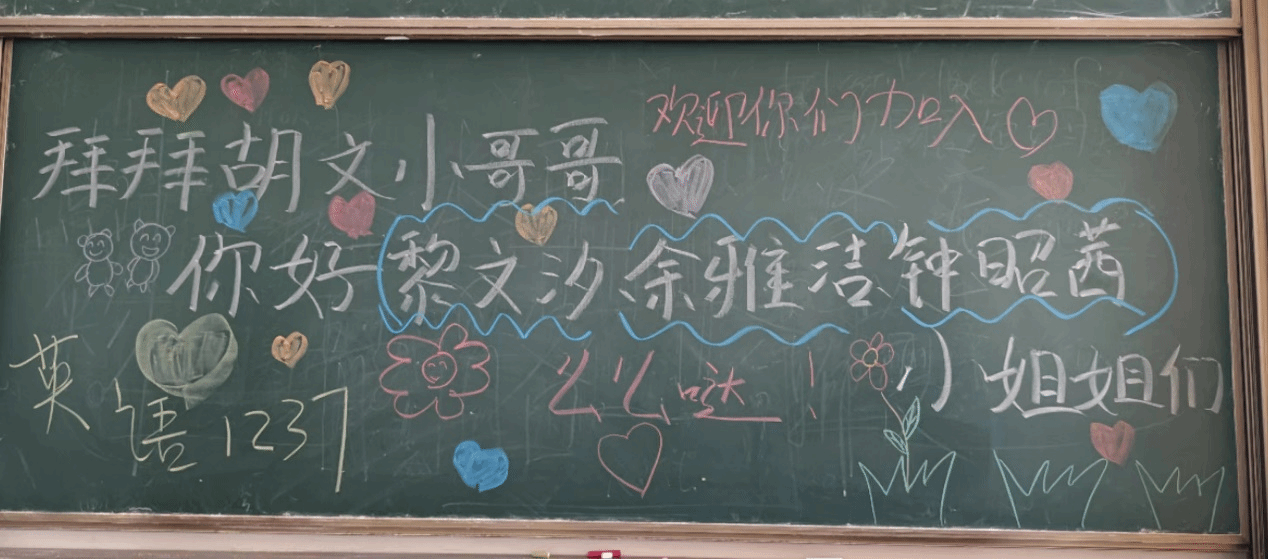 欢迎你们加入
拜拜胡文小哥哥
你好黎文汐余雅洁钟昭茜
小姐姐们
么么哒！
英语1237